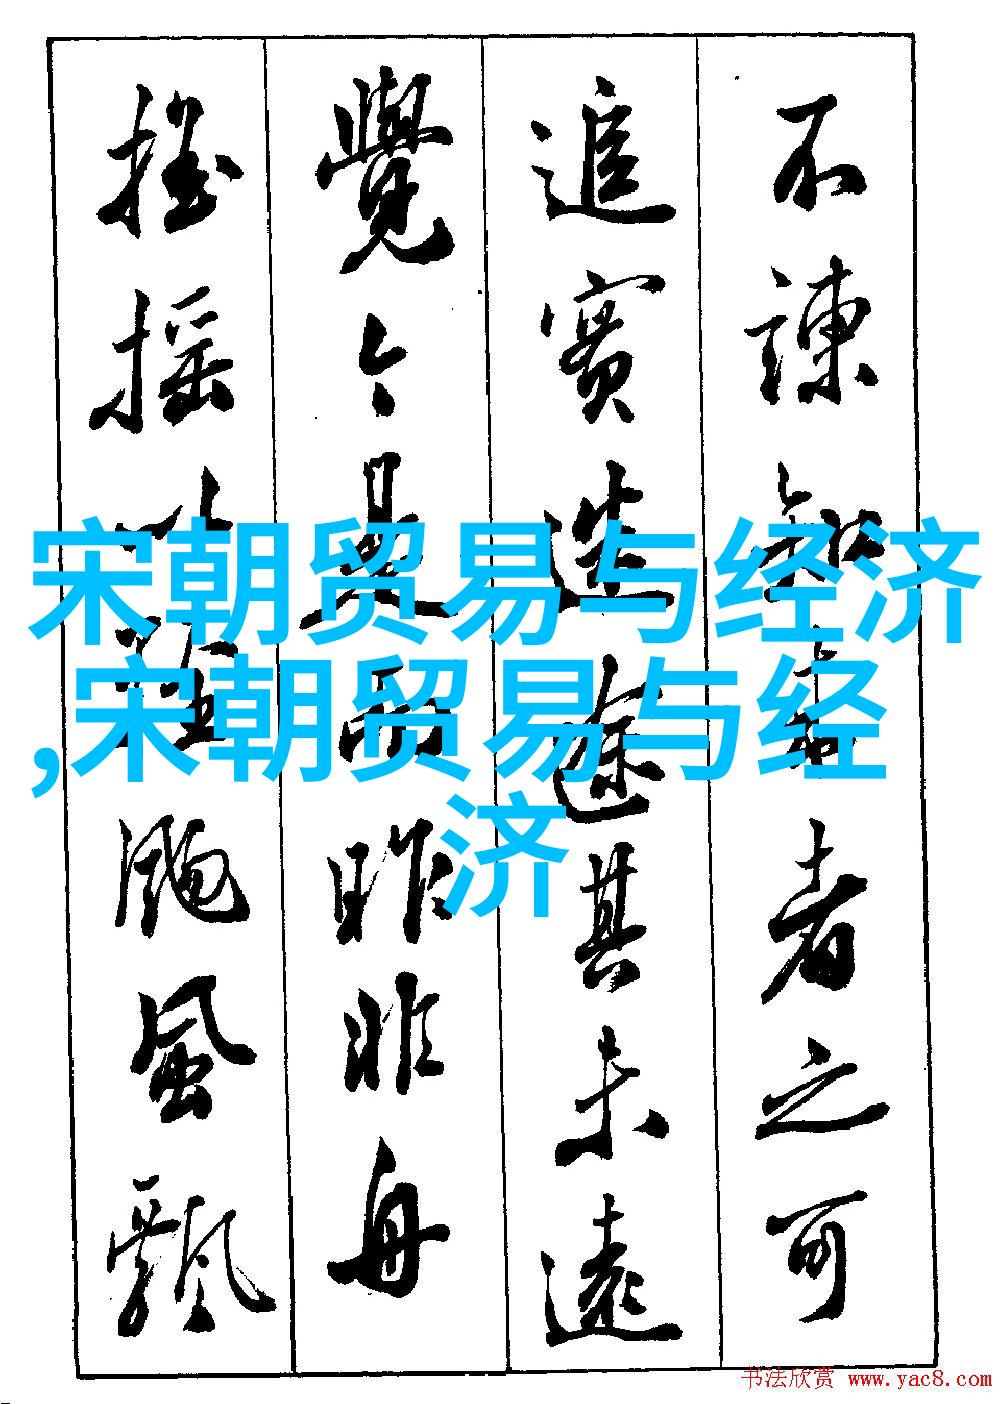 不諫知来者之可
追實迷途其未遠
覺今是而昨非舟
搖摇以輕颺風飄
宋朝贸易与经济
,宋朝贸易与经
济
书法欣赏 www.yac8.com